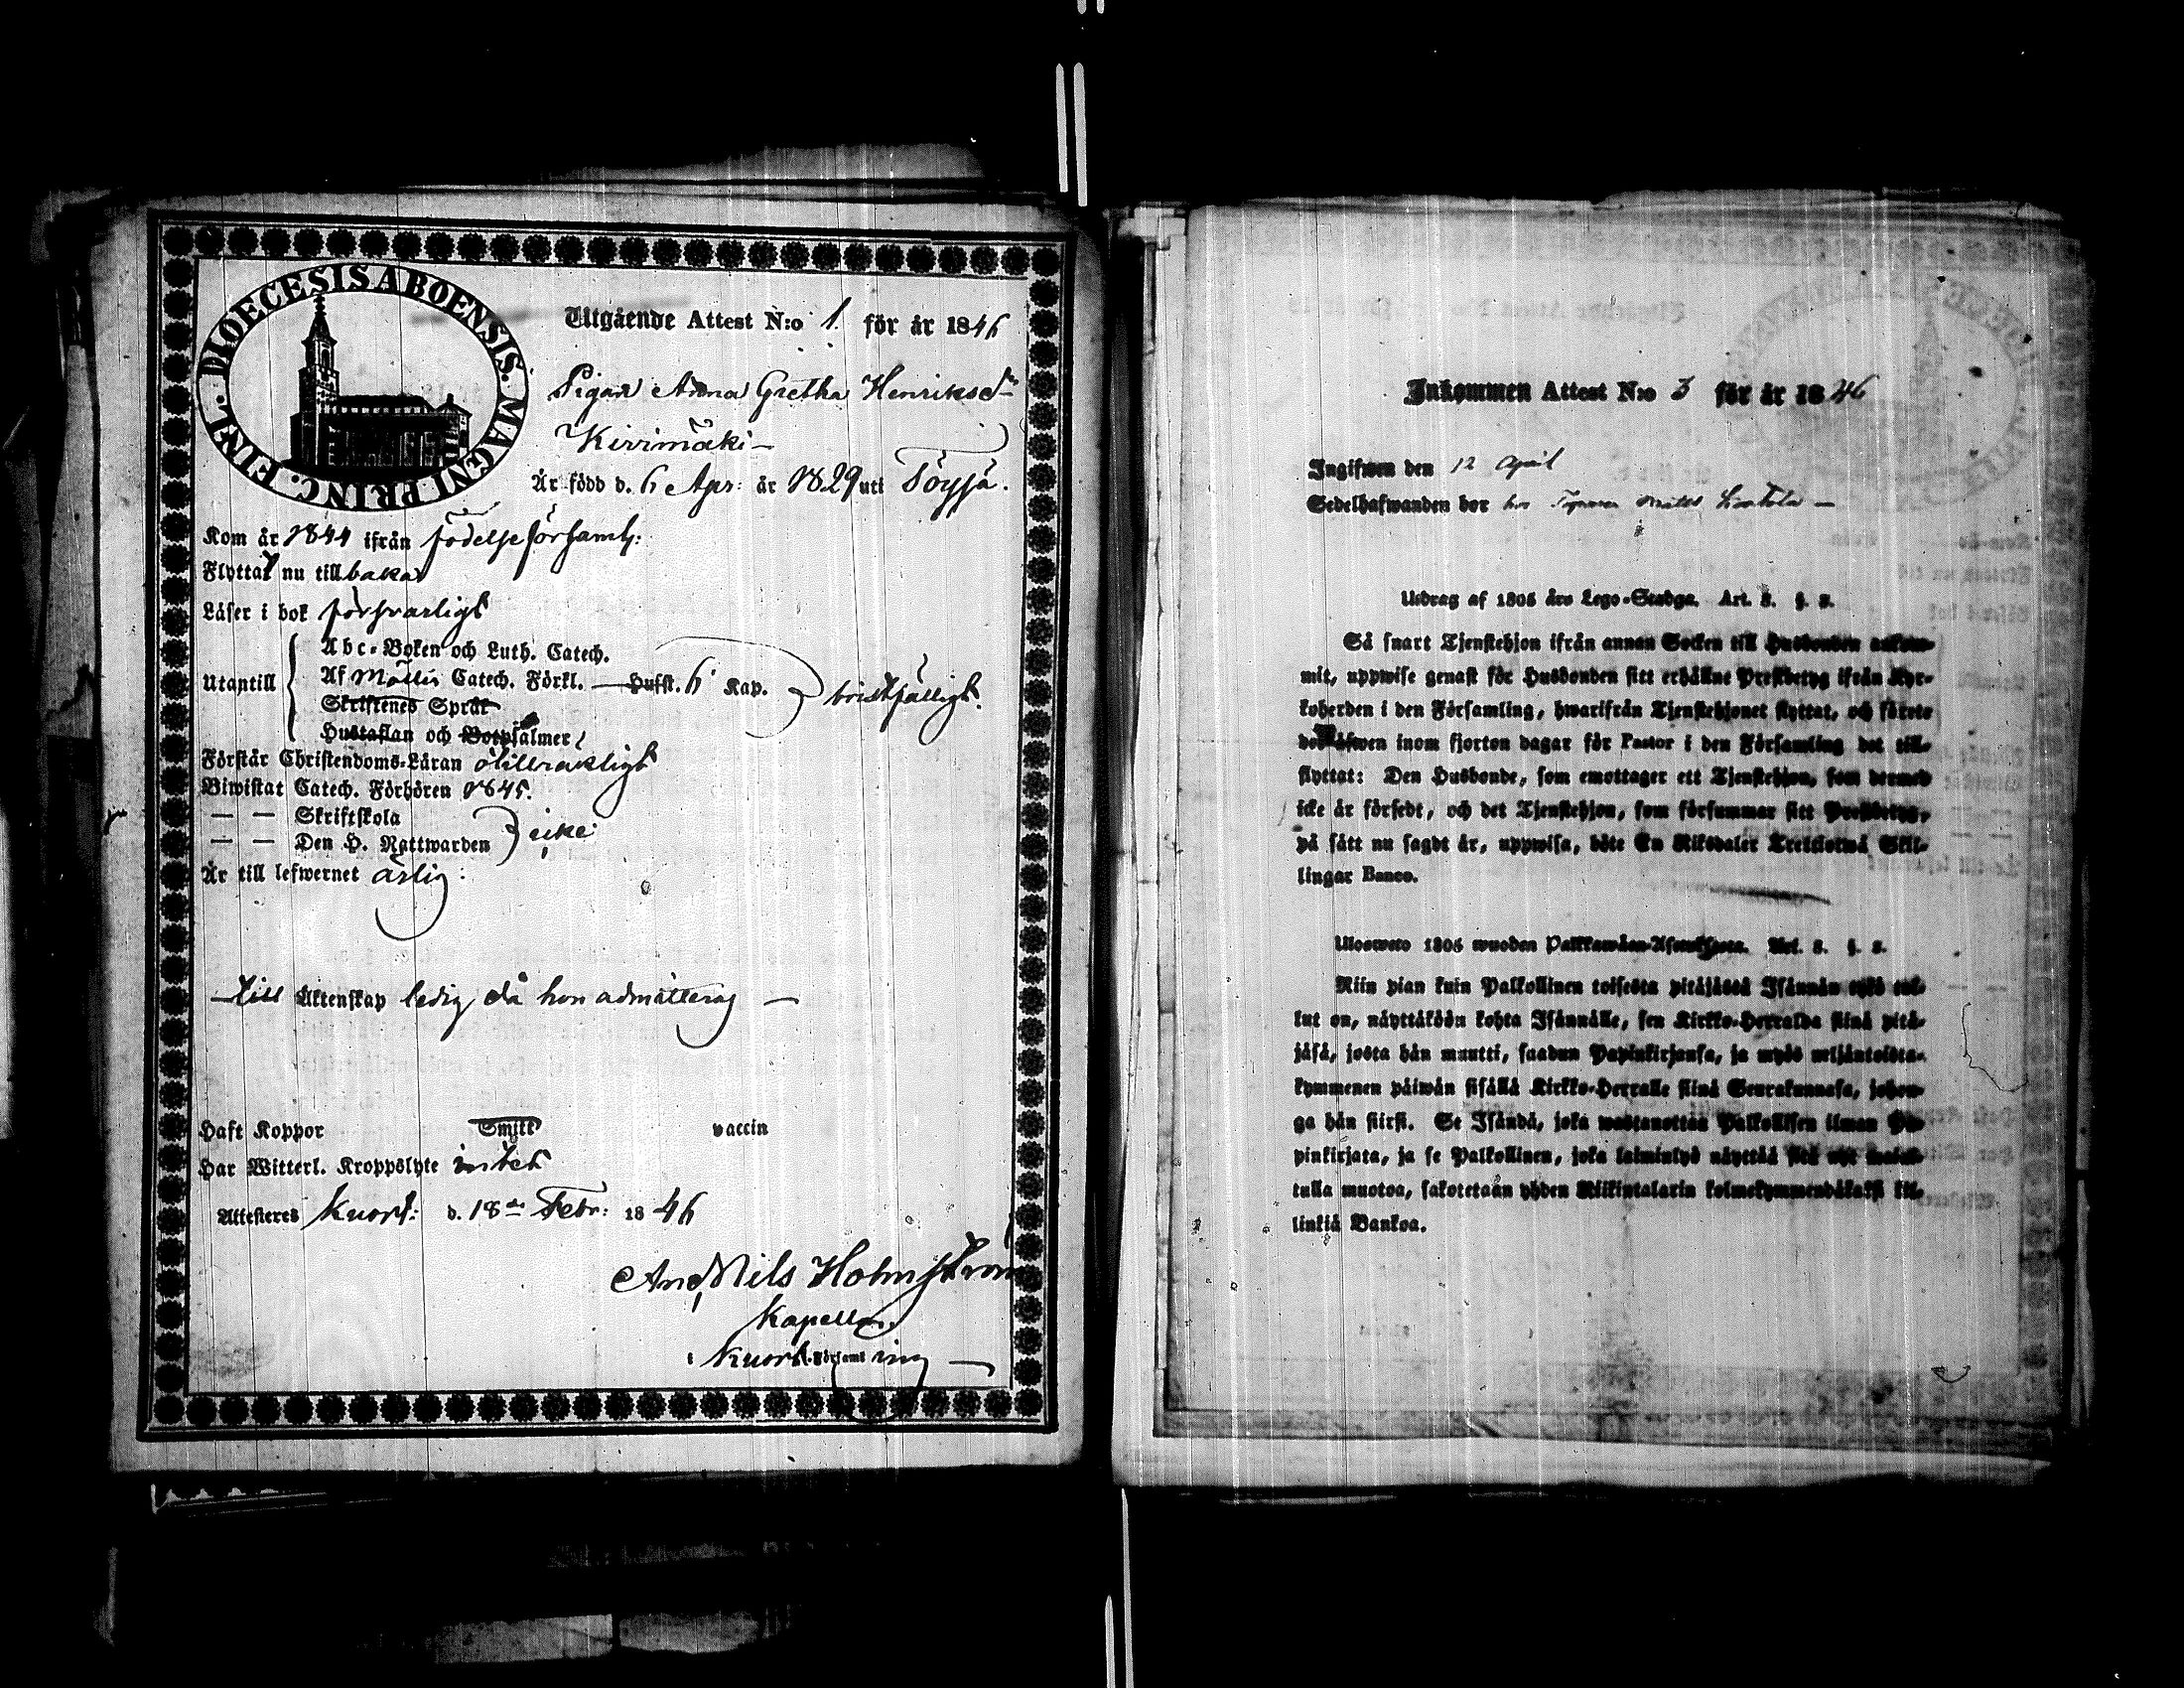 DIOECESIS ABOENSIS. MAGNI PRINC. FINL.
Utgående Attest N:o 1. för år 1846
Pigan Anna Gretha Henriksdr
Kivimäki
År född d. 6 Apr: år 1829 uti Töysä.
Kom år 1844 ifrån födelse församl:
Flyttar nu till baka
Läser i bok försvarligt
Utantill
Abc-Boken och Luth. Catech.
Af Möllers Catech. Förkl. Hufst. 6 Kap.
bristfälligt.
Skriftenes Språk
Hustaflan och Botpsalmer
Förstår Christendoms-Läran otillräckligt
Biwistat Catech. Förhören 1845.
— — Skriftskola
— — Den H. Nattwarden
icke
Är till lefwernet ärlig:
till Äktenskap ledig då hon admitteras —
Haft Koppor Smitt vaccin
Har Witterl. Kroppslyte intet
Attesteres Kuort: d. 18de Febr: 1846
And Nils Holmström
Kapellan
i Kuort. Församl ing —
Inkommen Attest N:o 3 för år 1846
Ingifwen den 12 April
Sedelhafwanden bor hos Matts —
Utdrag af 1805 års Lego-Stadga. Art. 3. §. 2.
Så snart Tjenstehjon ifrån annan Socken till Husbonden ankom-
mit, uppwise genast för Husbonden sitt erhållne Prestbetyg ifrån Kyr-
koherden i den Församling, hwarifrån Tjenstehjonet flyttat, och förete
det äfwen inom fjorton dagar för Pastor i den Församling det till-
flyttat: Den Husbonde, som emottager ett Tjenstehjon, som dermed
icke är försedt, och det Tjenstehjon, som försummar sitt Prestbetyg,
på sätt nu sagdt är, uppwisa, böte En Riksdaler Trettiotwå Skil-
lingar Banco.
Uloswето 1805 wuoden Palkkawäen-Asetuksesta. Art. 3. §. 2.
Niin pian kuin Palkollinen toisesta pitäjästä Isännän tykö tul-
lut on, näyttäköön kohta Isännälle, sen Kirkko-Herralda siinä pitä-
jäsä, josta hän muutti, saadun Papinkirjansa, ja myös neljäntoista-
kymmenen päiwän sisällä Kirkko-Herralle siinä Seurakunnasa, johon-
ga hän siirsi. Se Isändä, joka wastanottaa Palkollisen ilman Pa-
pinkirjata, ja se Palkollinen, joka laiminlyö näyttää sitä nyt mainit-
tulla muotoa, sakotetaan yhden Riikintalarin kolmekymmendäkaksi kil-
linkiä Bankoa.